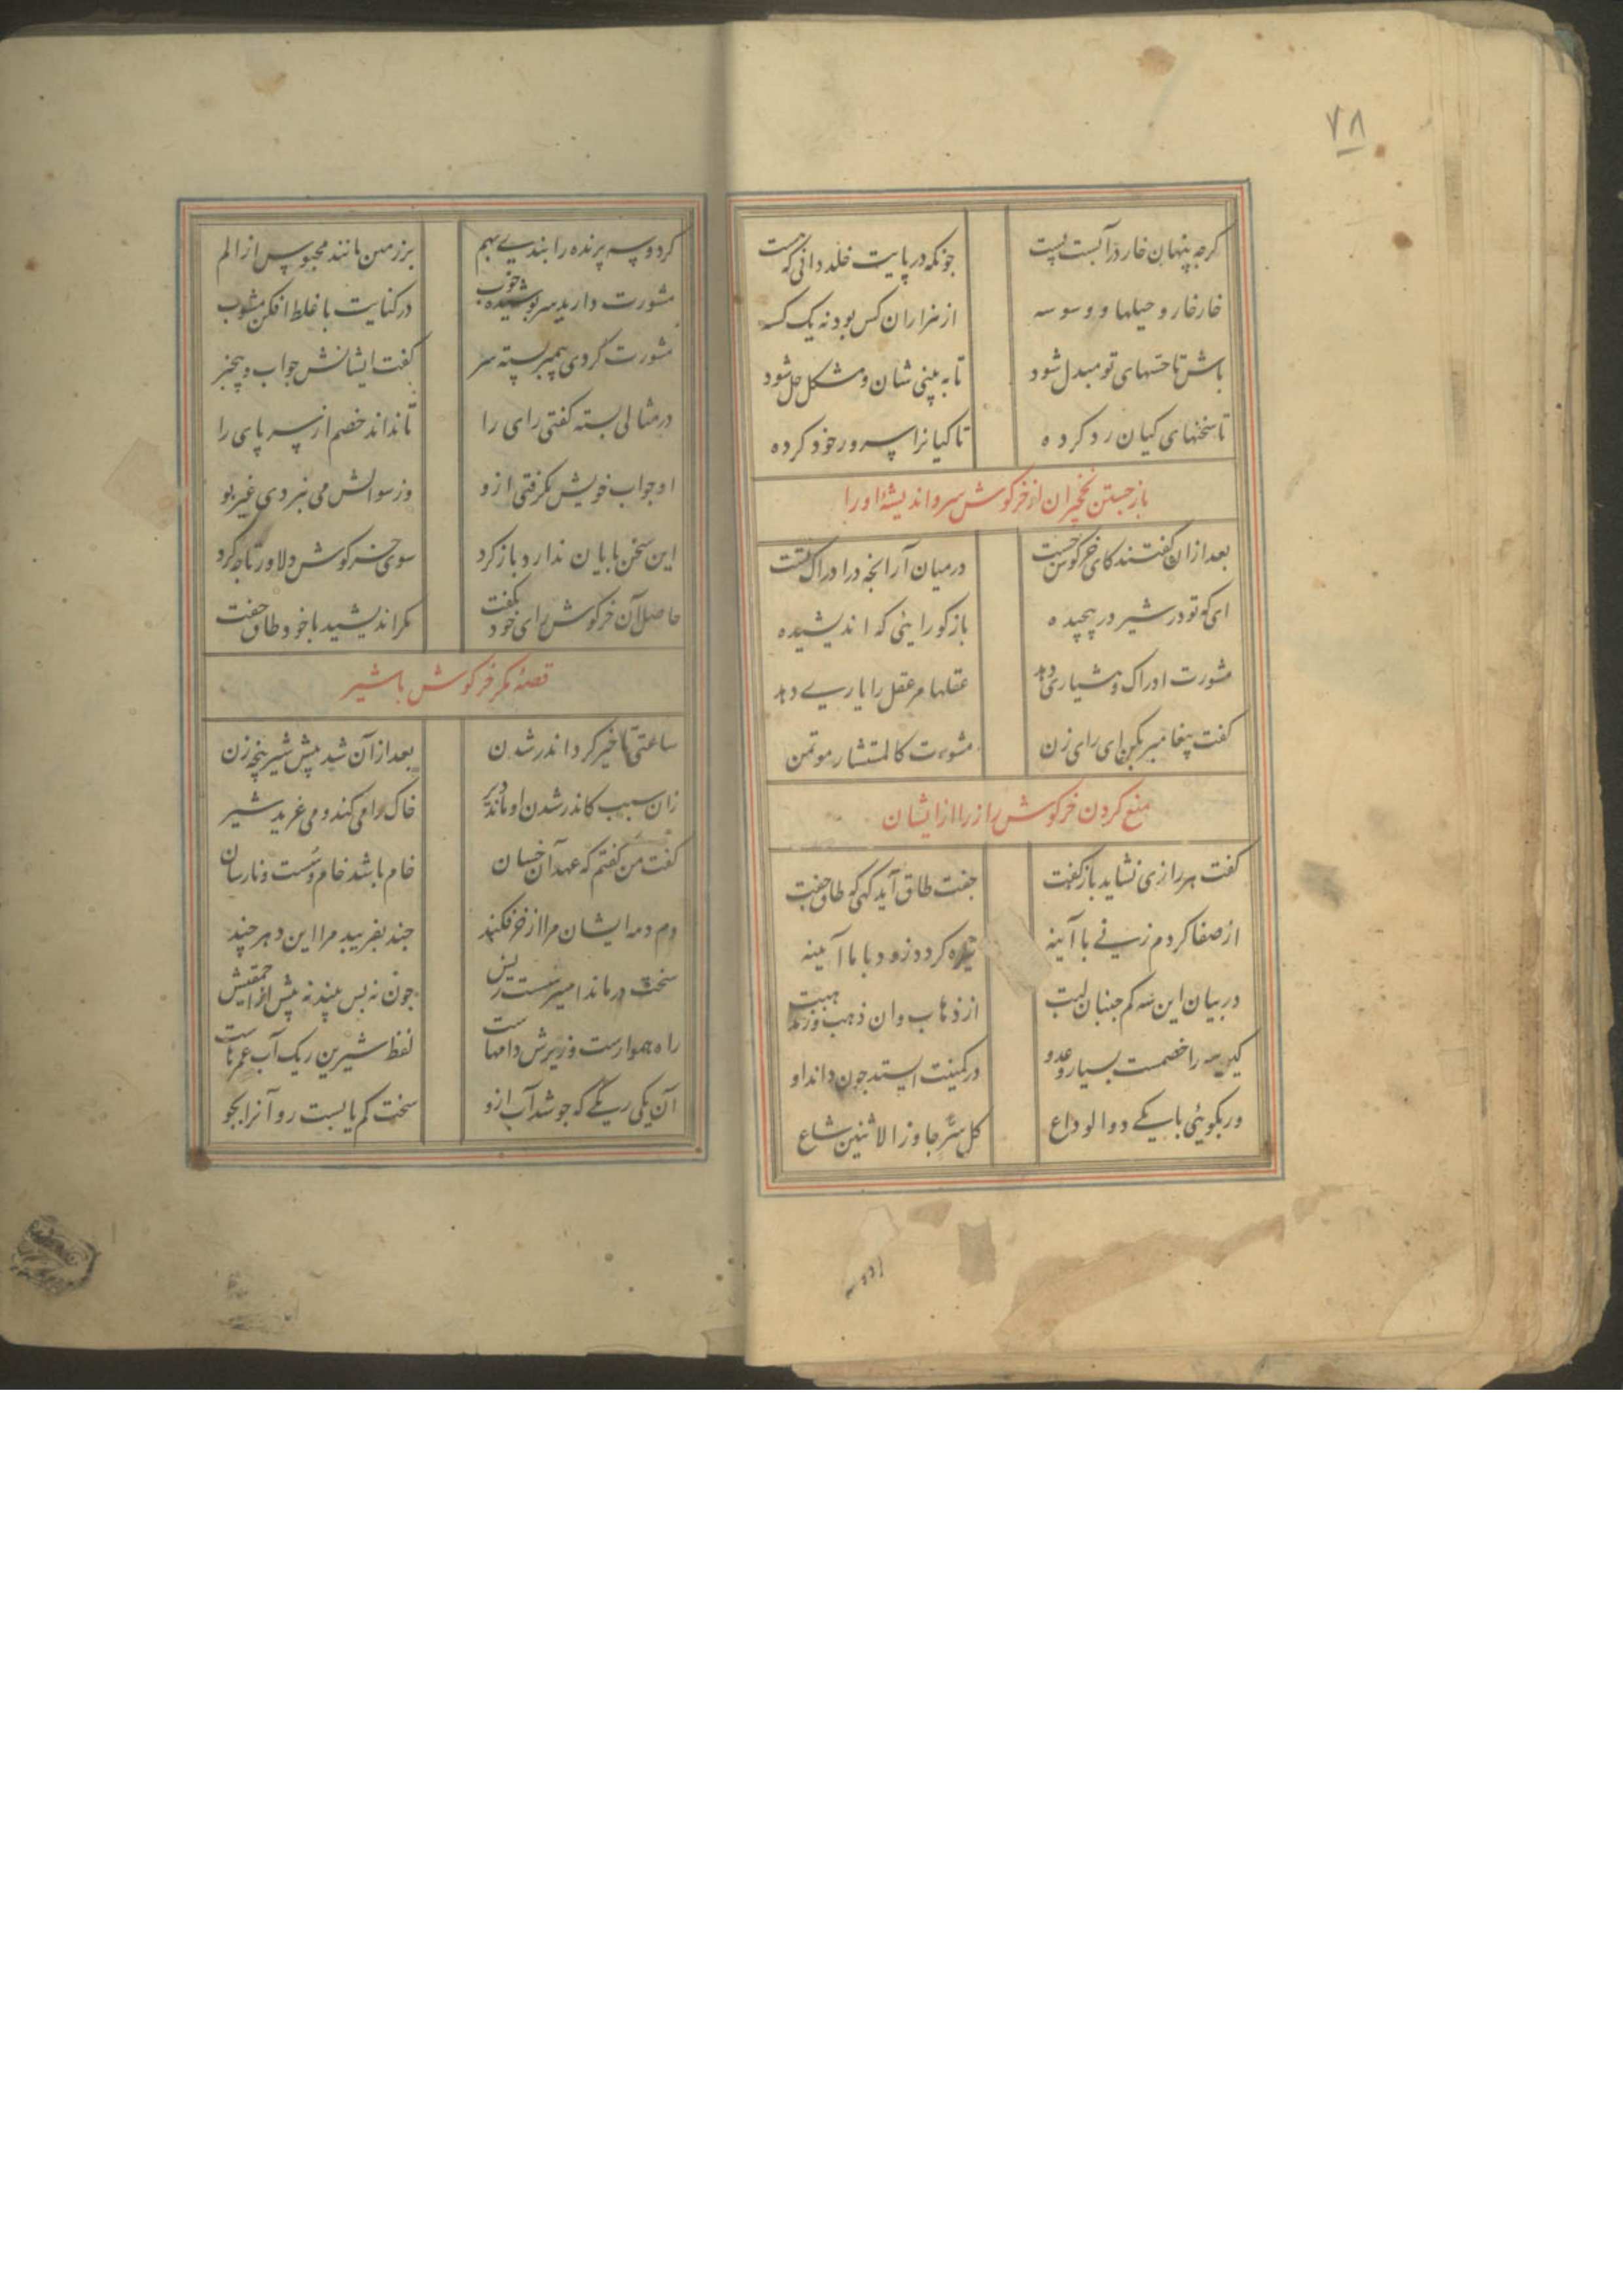 ۷۸
کرچه پنهان خار در آبست پست چونکه در پایت خلد دانی که هست
خارخار و حیلها و وسوسه از هزاران کس بود نه یک کسه
باش تا حسهای تو مبدل شود تا به بینی شان و مشکل حل شود
تا سخنهای کیان رد کرده تا کیانرا سرور خود کرده
باز جستن نخچیران از خرکوش سر و اندیشهٔ او را
بعد ازان کفتند کای خرکوش چست در میان آر آنچه در ادراک تست
ای که تو در شیر در پیچیده بازکو رایئی که اندیشیده
مشورت ادراک و هشیاری دهد عقلها مر عقل را یاری دهد
کفت پیغامبر بکن ای رای زن مشورت کالمستشار موتمن
منع کردن خرکوش راز را از ایشان
کفت هر رازی نشاید باز کفت جفت طاق آید کهی که طاق جفت
از صفا کر دم زنی با آینه تیره کردد زود با ما آیینه
در بیان این سه کم جنبان لبت از ذهاب و ان ذهب وز مذهبت
کین سه را خصمست بسیار و عدو در کمینت ایستد چون داند او
ور بکوئی با یکی دو الوداع کل سر جاوز الاثنین شاع
کر دو سه پرنده را بندی بهم بر زمین مانند محبوس از الم
مشورت دارید سرپوشیده خوب در کنایت با غلط افکن مشوب
مشورت کردی پیمبر بسته سر کفت ایشانش جواب و بیخبر
در مثالی بسته کفتی رای را تا نداند خصم از سر پای را
او جواب خویش بکرفتی ازو وز سوالش می نبردی غیر بو
این سخن پایان ندارد باز کرد سوی خرکوش دلاور تا چه کرد
حاصل آن خرکوش رای خود نکفت مکر اندیشید با خود طاق جفت
قصهٔ مکر خرکوش با شیر
ساعتی تاخیر کرد اندر شدن بعد ازآن شد پیش شیر پنجه زن
زان سبب کاندر شدن او ماند دیر خاک را می کند و می غرید شیر
کفت من کفتم که عهد آن خسان خام باشد خام و سست و نارسان
دم دمه ایشان مرا از خر فکند چند بفریبد مرا این دهر چند
سخت درماند امیر سست ریش چون نه پس بیند نه پیش از احمقیش
راه هموارست و زیرش دامهاست لفظ شیرین ریک آب عمر ماست
آن یکی ریکی که جوشد آب ازو سخت کم یابست رو آنرا بجو